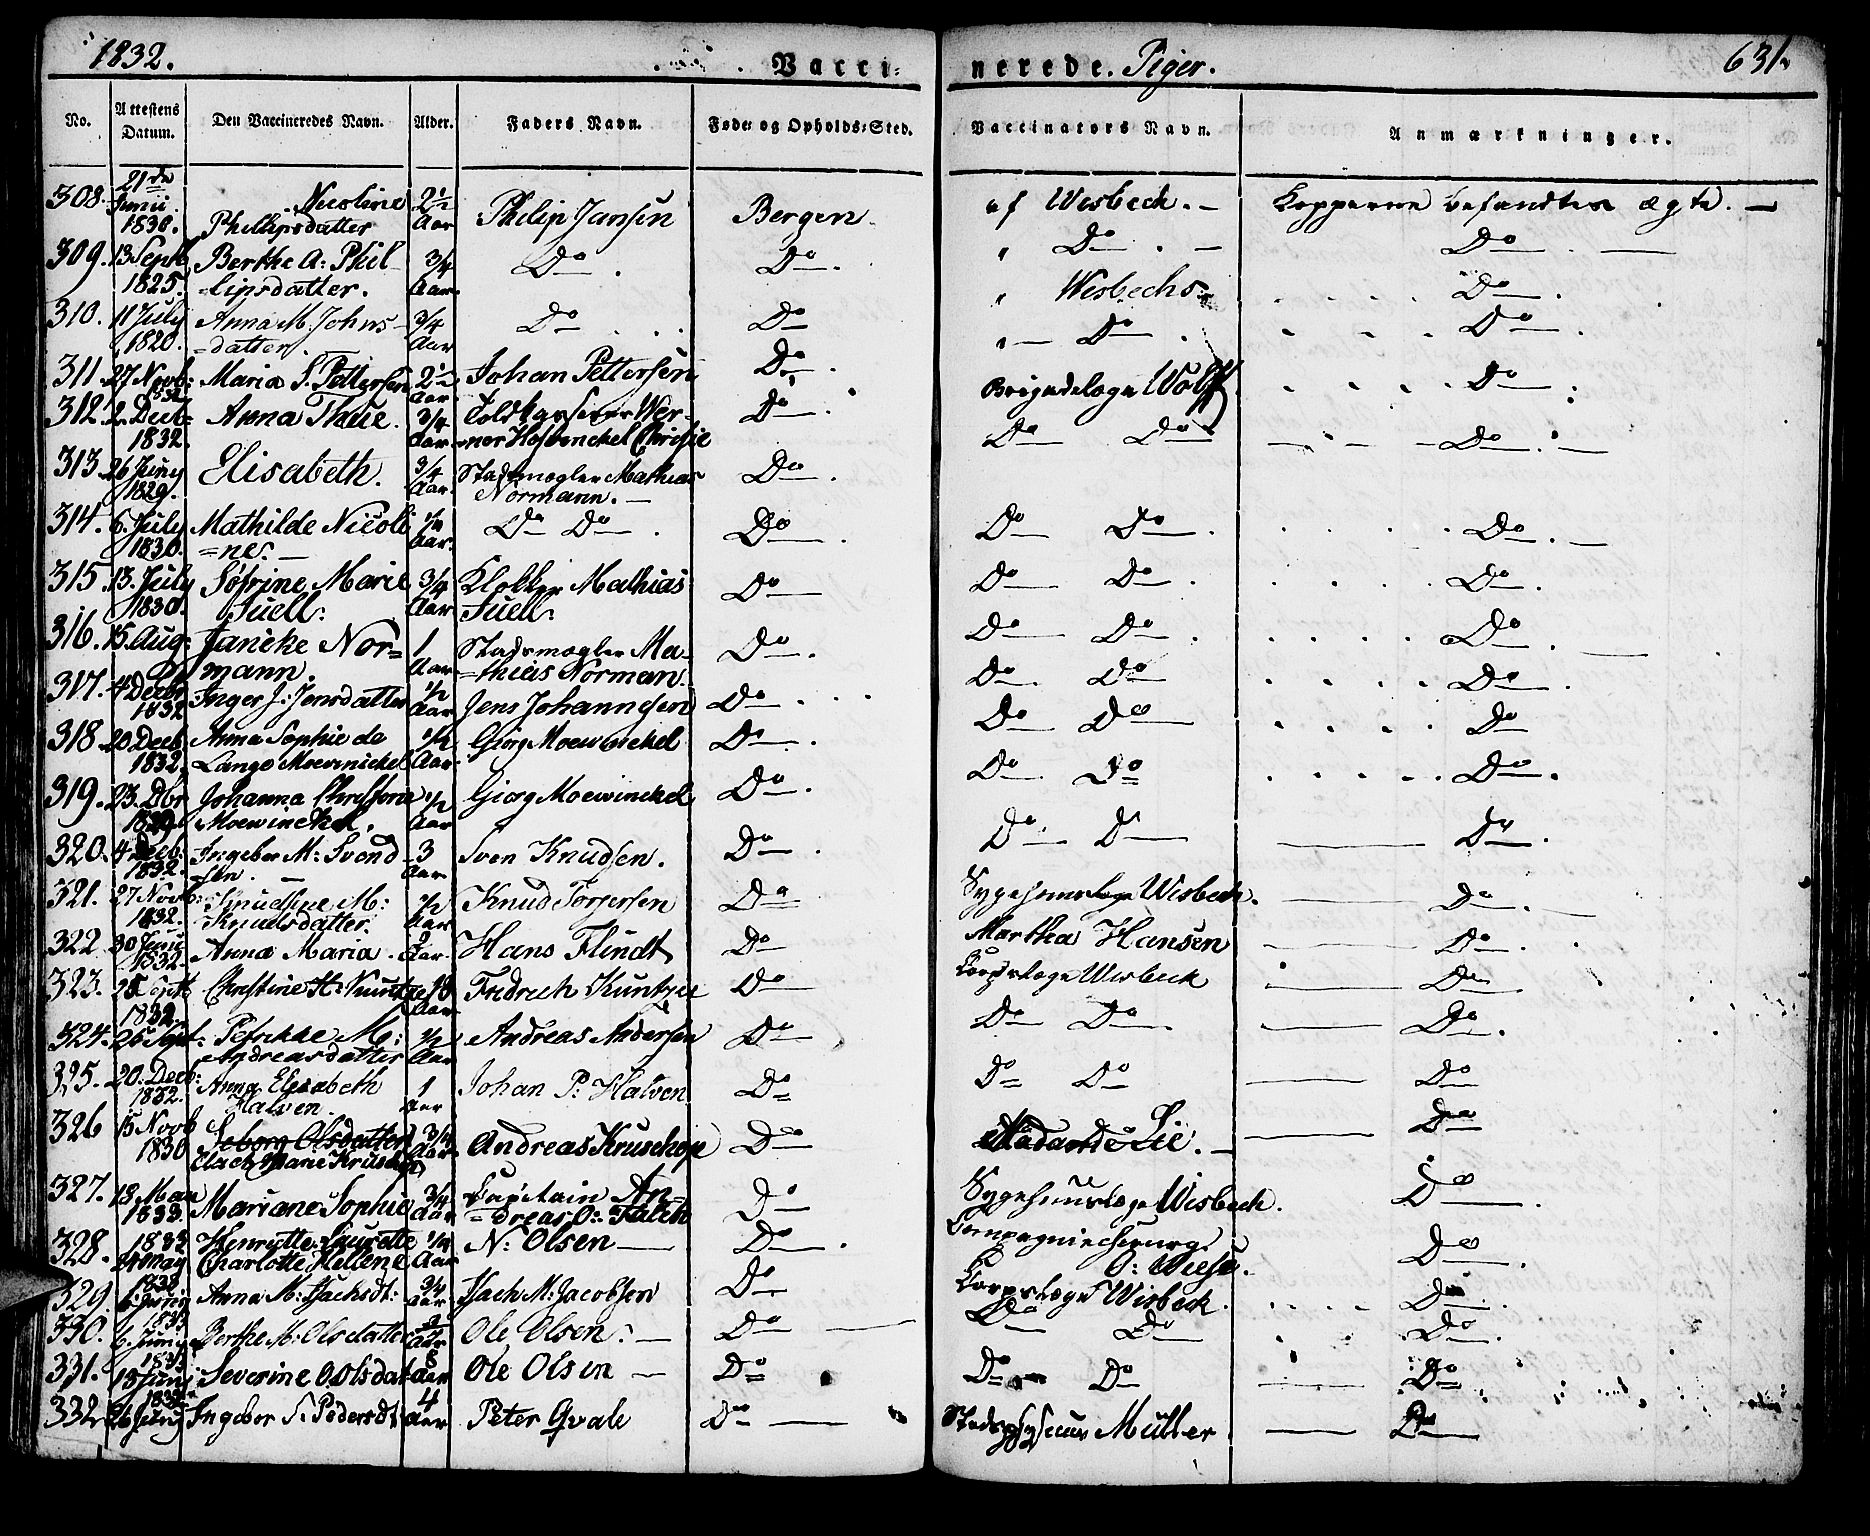 1832. Vacci- nerede. Piger. 631.
No. Attestens Datum. Den Vaccineredes Navn. Alder. Faders Navn. Føde- og Opholds-Sted. Vaccinators Navn. Anmærkninger.
308. 21de Junii 1830. Nicoline Phillipsdatter 2½ Aar Philip Jansen Bergen af Wisbeck. — Kopperne befandtes ægte. —
309. 13 Septb 1825. Berthe A: Phil-
=lipsdatter. ¾ Aar Do. Do. " Do. — Do. —
310. 11 July 1820. Anna M. Johns-
=datter. ¾ Aar Do Do " Wisbechs. Do.
" — Do. Do.
311. 27 Novb: 1832 Maria S. Pettersen 2½ Aar. Johan Pettersen Do. Brigadelæge Wolff Do.
312. 2. Decb 1832. Anna Thue. ¾ Aar Toldkasserer Wer-
=ner Hosvenckel Christie Do. Do Do Do. —
313. 26 Juny 1829. Elisabeth. ¾ Aar. Stadsmægler Mathias
Normann. — Do.
314. 6. July 1830. Mathilde Nicoli
=ne. — ½ Aar. Do Do. Do. Do Do. Do. —
315. 13. July 1830. Søfrine Marie
Juell. ¾ Aar Klokker Mathias
Juell. Do Do Do. Do.
316. 15. Aug: Janicke Nor=
mann. 1 Aar Stadsmægler Ma-
=thias Norman. Do. Do Do. Do. —
317. 4 Decbr 1832 Inger J: Jensdatter ½ Aar Jens Johannesen Do. Do. Do Do.
318. 20 Decb. 1832. Anna Sophie de
Lange Moewinckel ½ Aar. Giørg Moewinckel Do. Do Do Do
319. 23. Dbr 1829. Johanna Christina
Moewinckel. ½ Aar Giørg Moewinckel Do. Do. Do Do.
320. 4 Decb: 1832. Ingebor M: Svend
=sen. — 3 Aar Sven Knudsen. Do. Do. Do Do.
321. 27 Novb: 1832. Knudsine M:
Knudsdatter. ½ Aar Knud Torgersen Do Sygehuuslæge Wisbeck. Do. —
322. 30 Juni 1832. Anna Maria. Aar. Hans Flindt Do Martha Hansen Do.
323. 1832. Christine H: Kuntze Aar Fredrich Kuntzee Do Korpslæge Wisbeck Do
324. 26 Sept: Petrikke M:
Andreasdatter ½ Aar Andreas Andersen Do Do Do. Do.
325. 20. Decb: 1832. Anna Elisabeth
Halven. 1 Aar Johan P. Halven Do Do Do Do
326 15 Novb 1830 Seborg Olsdatter
Marie Krusekop ¾ Aar. Andreas Krusekop Do Madame Lie. — Do
327. 18 Man 1833. Mariane Sophie ¾ Aar Capitain An=
=dreas O: Falch Do Sygehuuslæge Wisbeck. Do.
328. 1833 May Henrytte Laurette
Charlotte Hellene ¼ Aar N: Olsen — Do. Compagniechirurg
O: Wiese. Do
329. 1833 6 Juny Anna M: Jachsdt: ¾ Aar. Jach M: Jacobsen Do Korpslæge Wisbeck. Do.
330. 1833 6 Juny Berthe M: Olsdatter Aar Ole Olsen. — Do — Do Do Do.
331. 1833 13 Juny Severine O Olsdat 8 Aar Ole Olsen — Do Do Do Do
332 1832 26 Juny Ingebor S. Pedersdt 4 Aar Peter Qvale Do — Stadsphysicus Müller Do